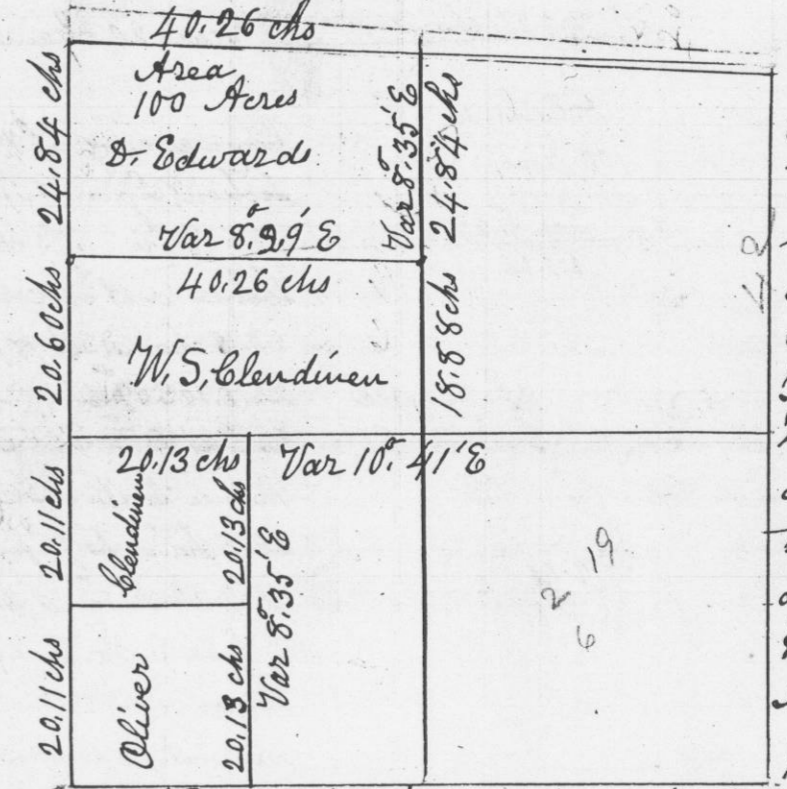 40.26 chs
Area
100 Acres
D. Edwards
24.84 chs
Var 8°.35' E
24.84 chs
Var 8°.29' E
40.26 chs
20.60 chs
W. S. Clendinen
18.88 chs
20.13 chs
Var 10° 41' E
20.11 chs
Clendinen
20.13 chs
Var 8°.35' E
20.11 chs
Oliver
20.13 chs
2 19
6